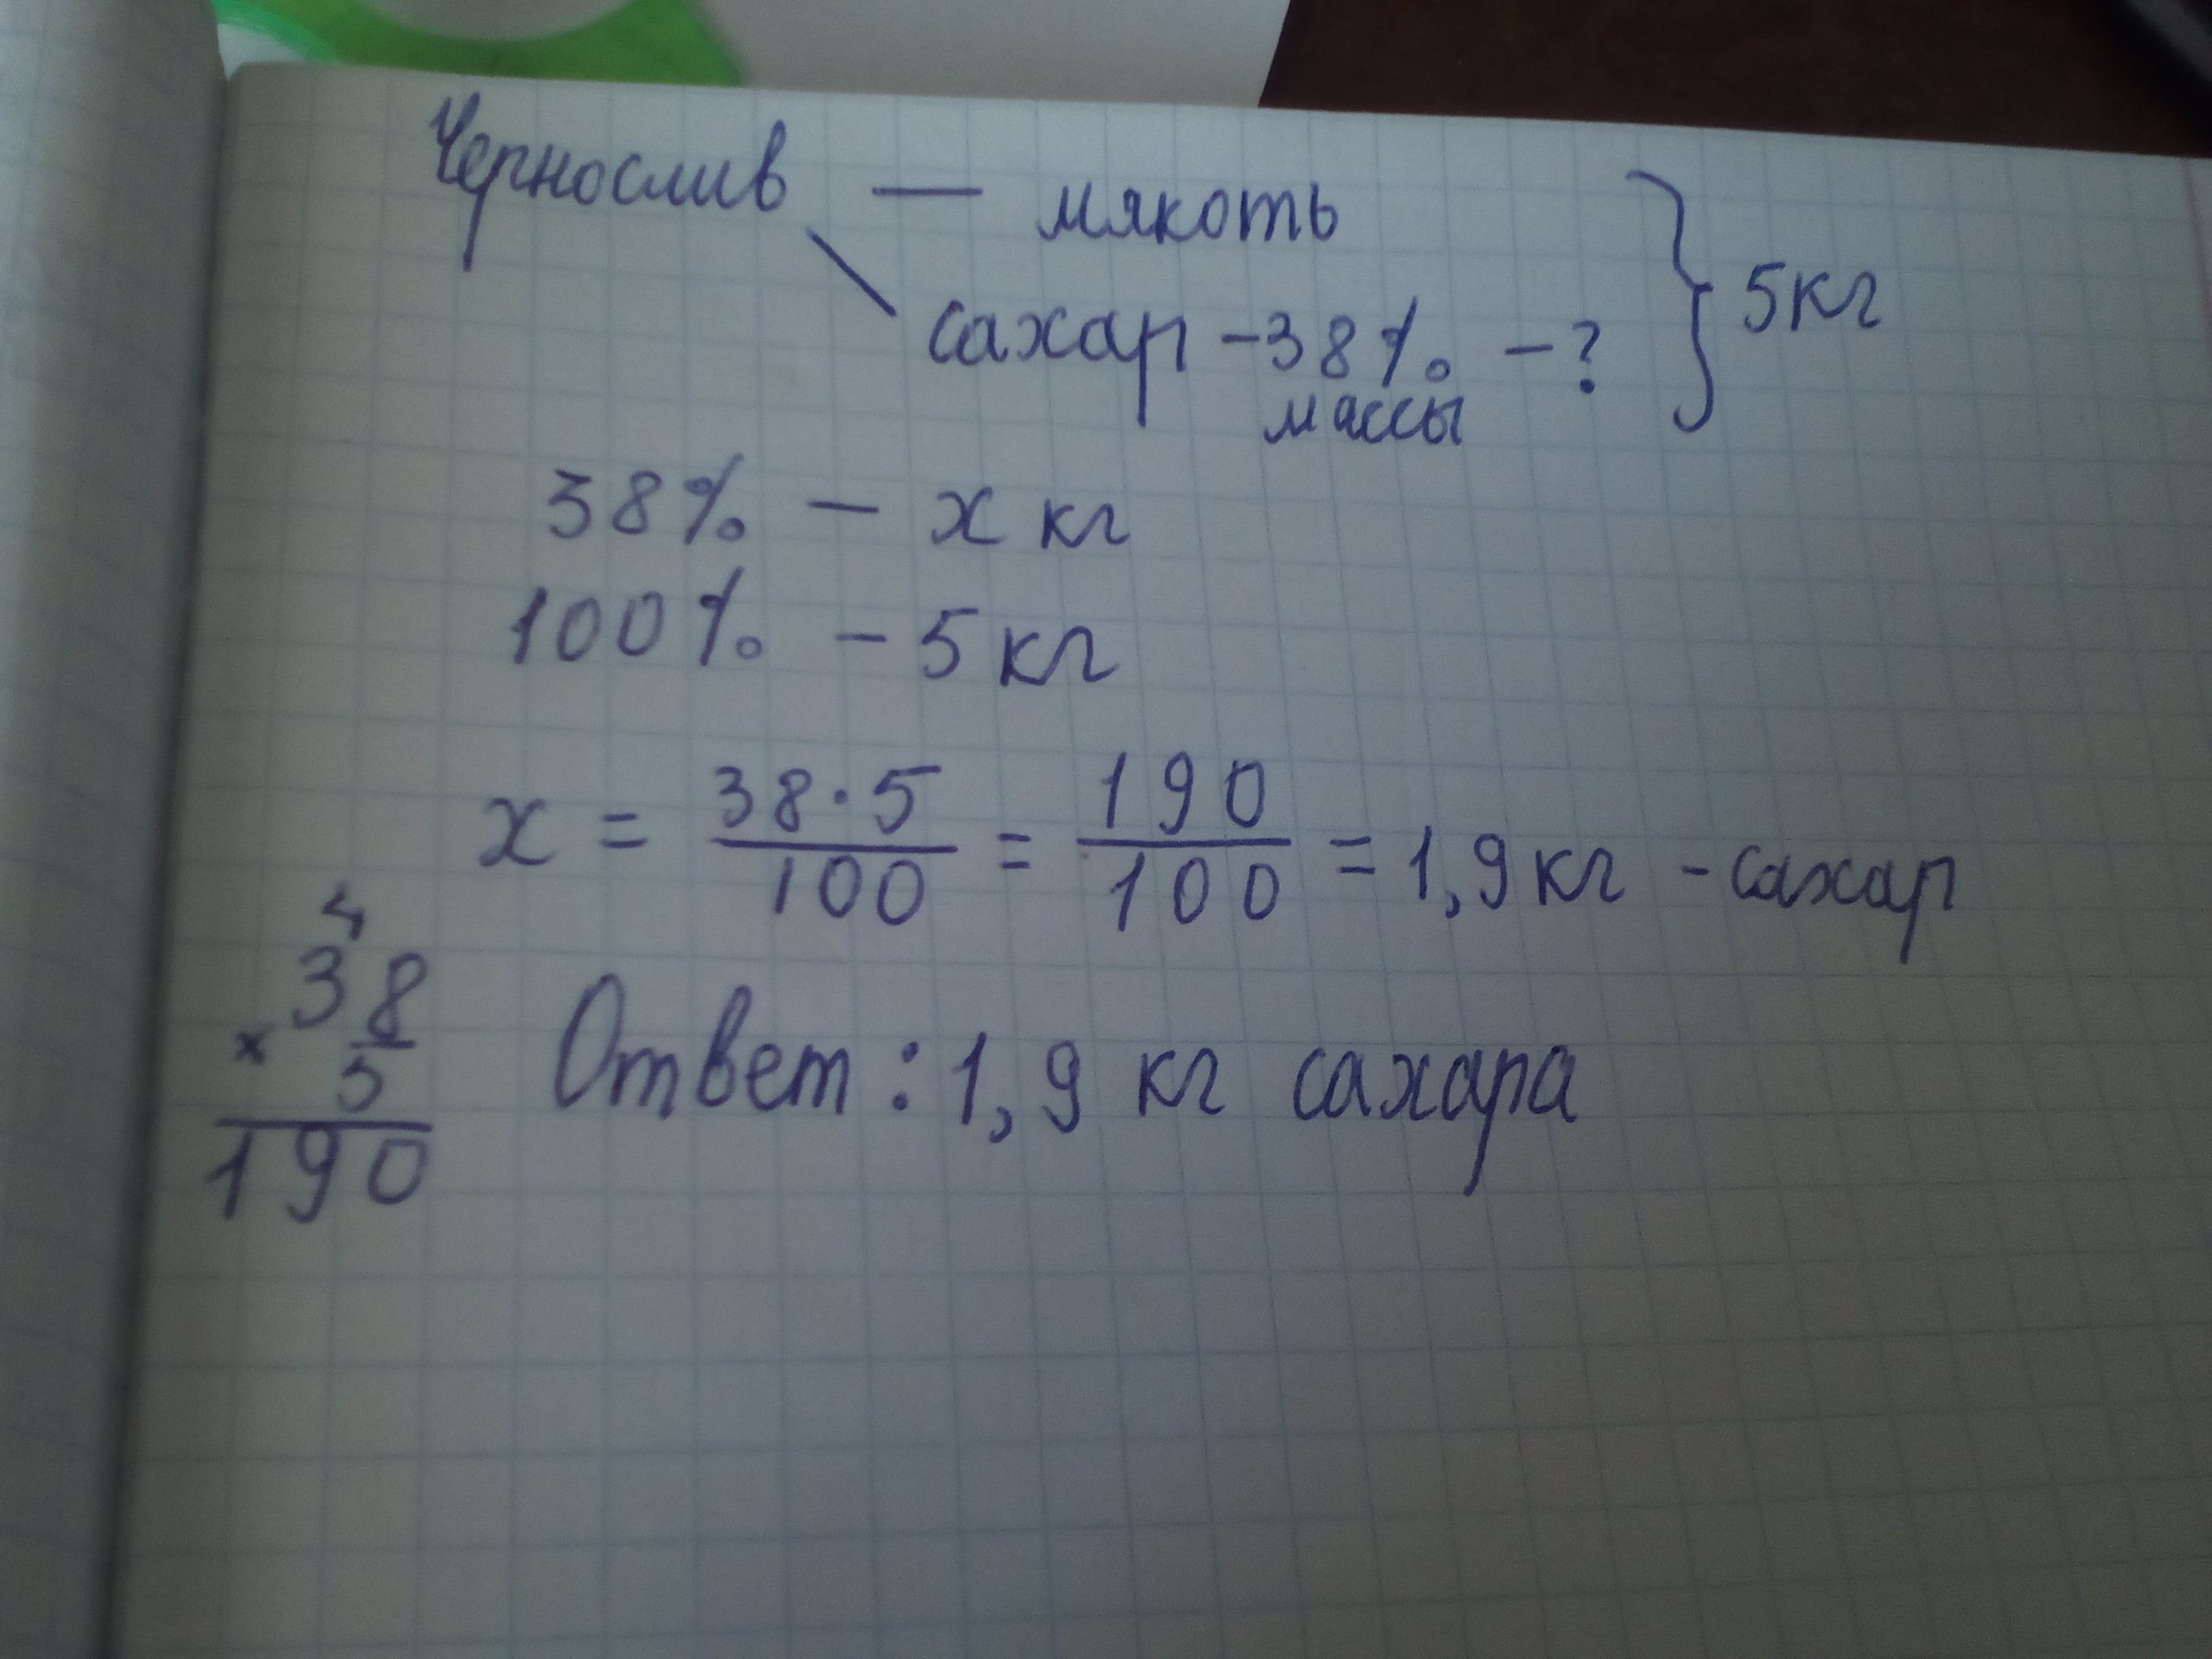 Чернослив — мякоть
сахар - 38% - ? } 5 кг
массы
38% — x кг
100% - 5 кг
x = 38·5/100 = 190/100 = 1,9 кг - сахар
4
38
× 5
190
Ответ: 1,9 кг сахара